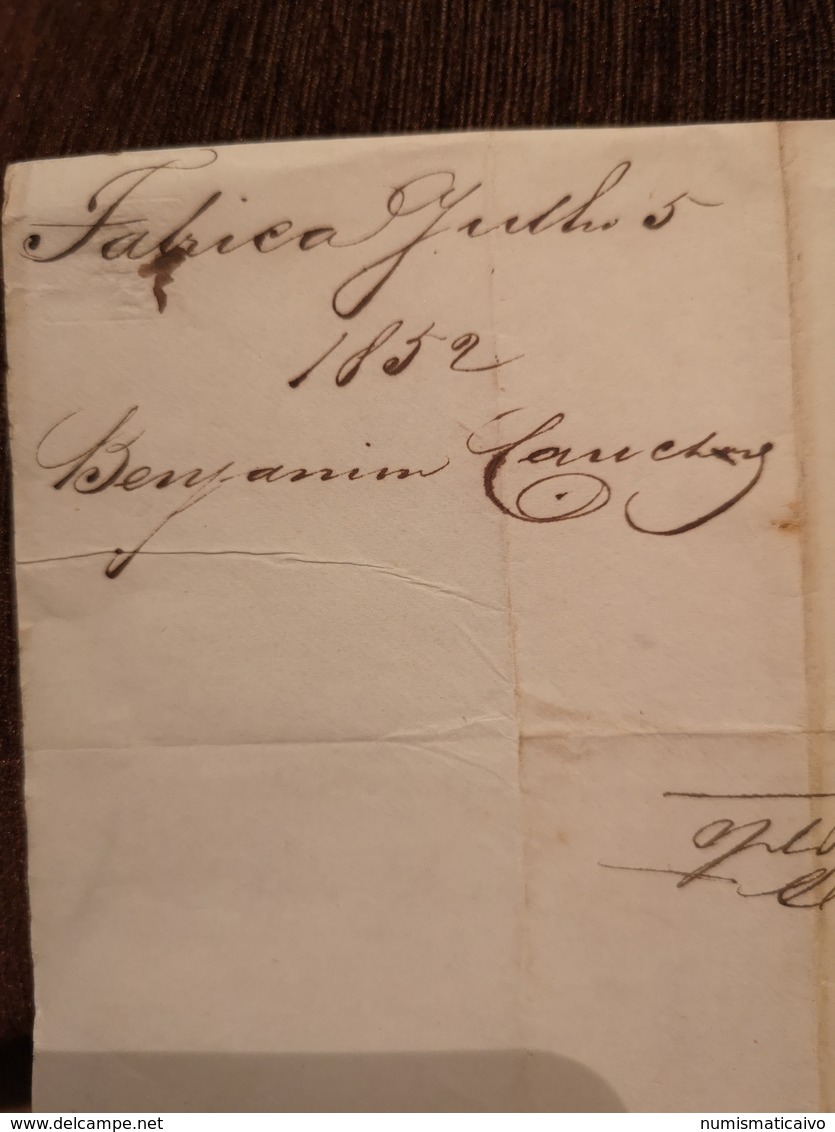 Fabrica Julho 5
1852
Benjamim
www.delcampe.net
numismaticaivo